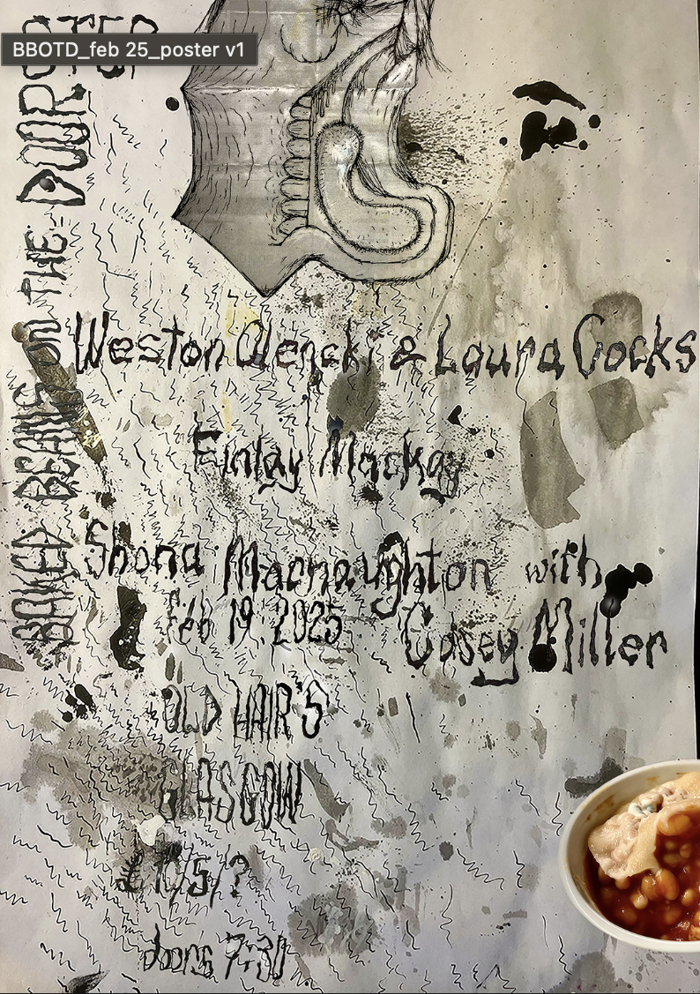 BBOTD_feb 25_poster v1
BAKED BEANS ON THE DOORSTEP
Weston Olencki & Laura Cocks
Finlay Mackay
Shona Macnaughton with
Feb 19. 2025 Casey Miller
OLD HAIR'S
GLASGOW
£10/5/?
doors 7:30